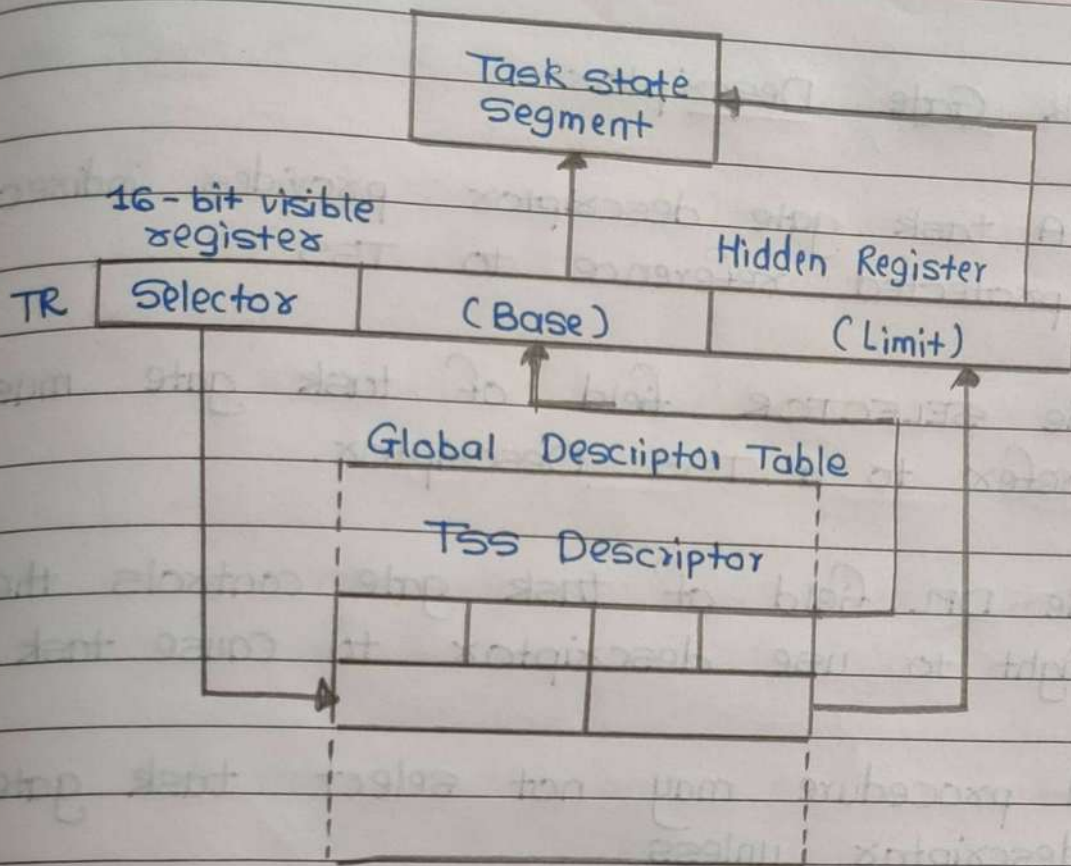 Task State
Segment
16-bit visible
register
Hidden Register
TR Selector (Base) (Limit)
Global Descriptor Table
TSS Descriptor